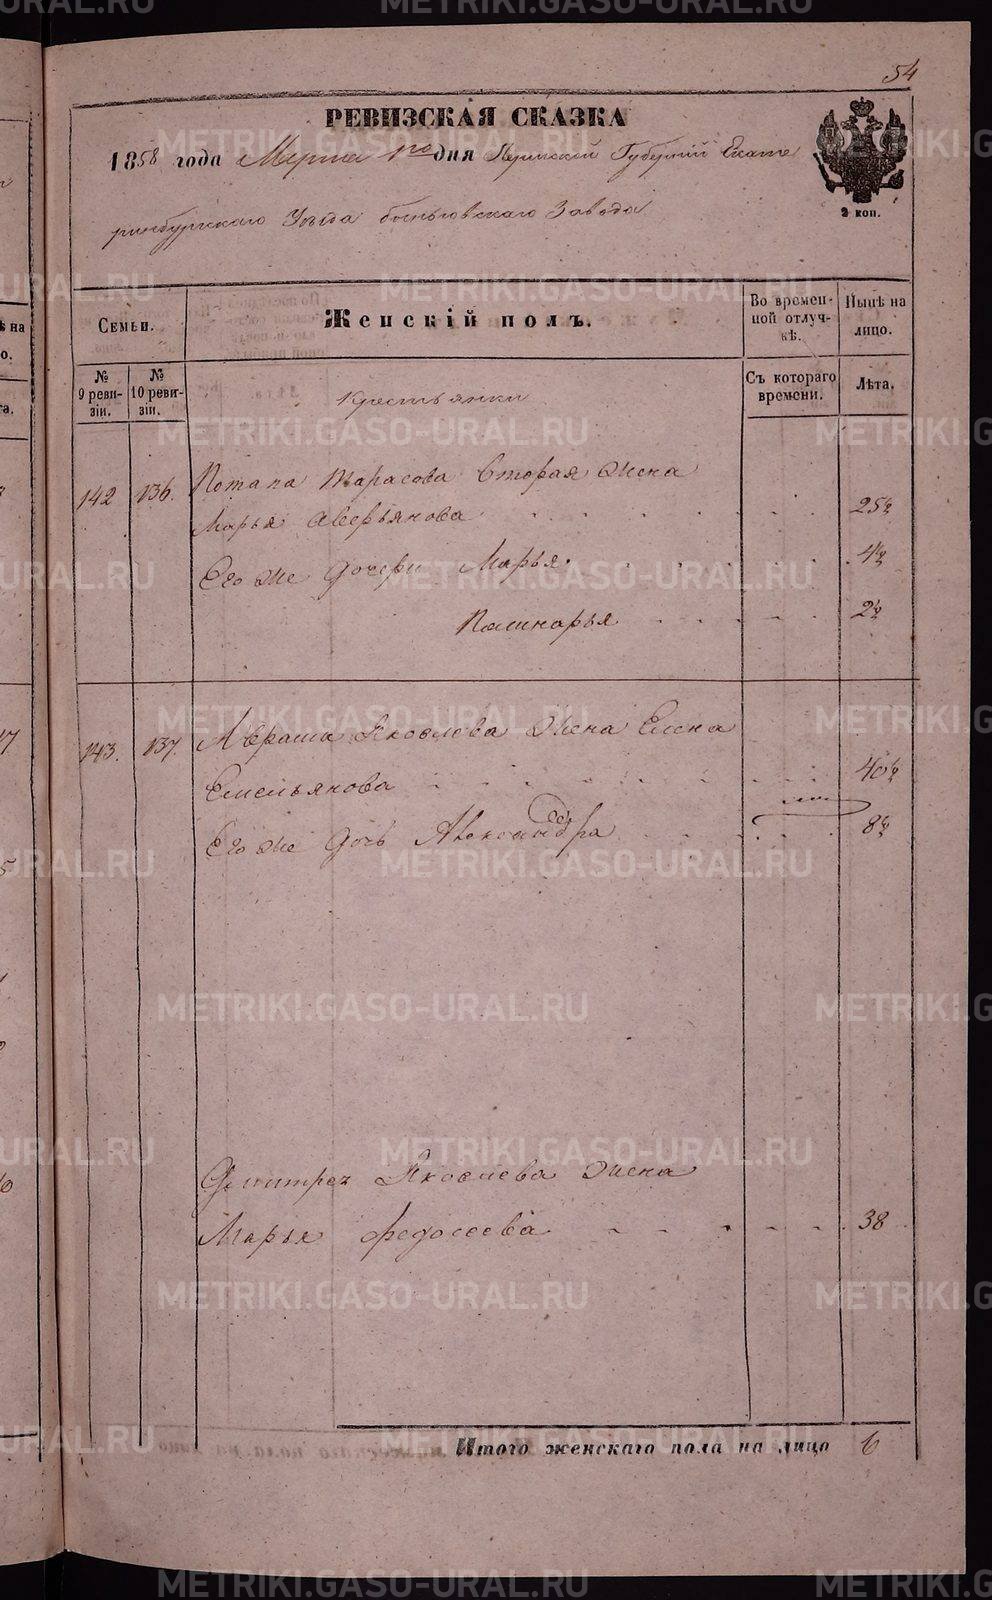 54
РЕВИЗСКАЯ СКАЗКА
1858 года Марта 1го дня Пермской Губерніи Екате
ринбургскаго Уезда Завода
2 коп.
Семьи.
Женскій полъ.
Во времен-
ной отлуч-
кѣ.
Нынѣ на
лицо.
№
9 реви-
зіи.
№
10 реви-
зіи.
Съ котораго
времени.
Лѣта.
Крестьянки
142 136. Потапа Тарасова вторая жена
Марья Аверьянова 25½
Его же дочери Марья 4½
2½
143. 137. Яковлева жена Елена
Емельянова 40½
Его же дочь Александра 8½
Яковлева жена
Марья Федосеева 38
Итого женскаго пола на лицо 6
METRIKI.GASO-URAL.RU